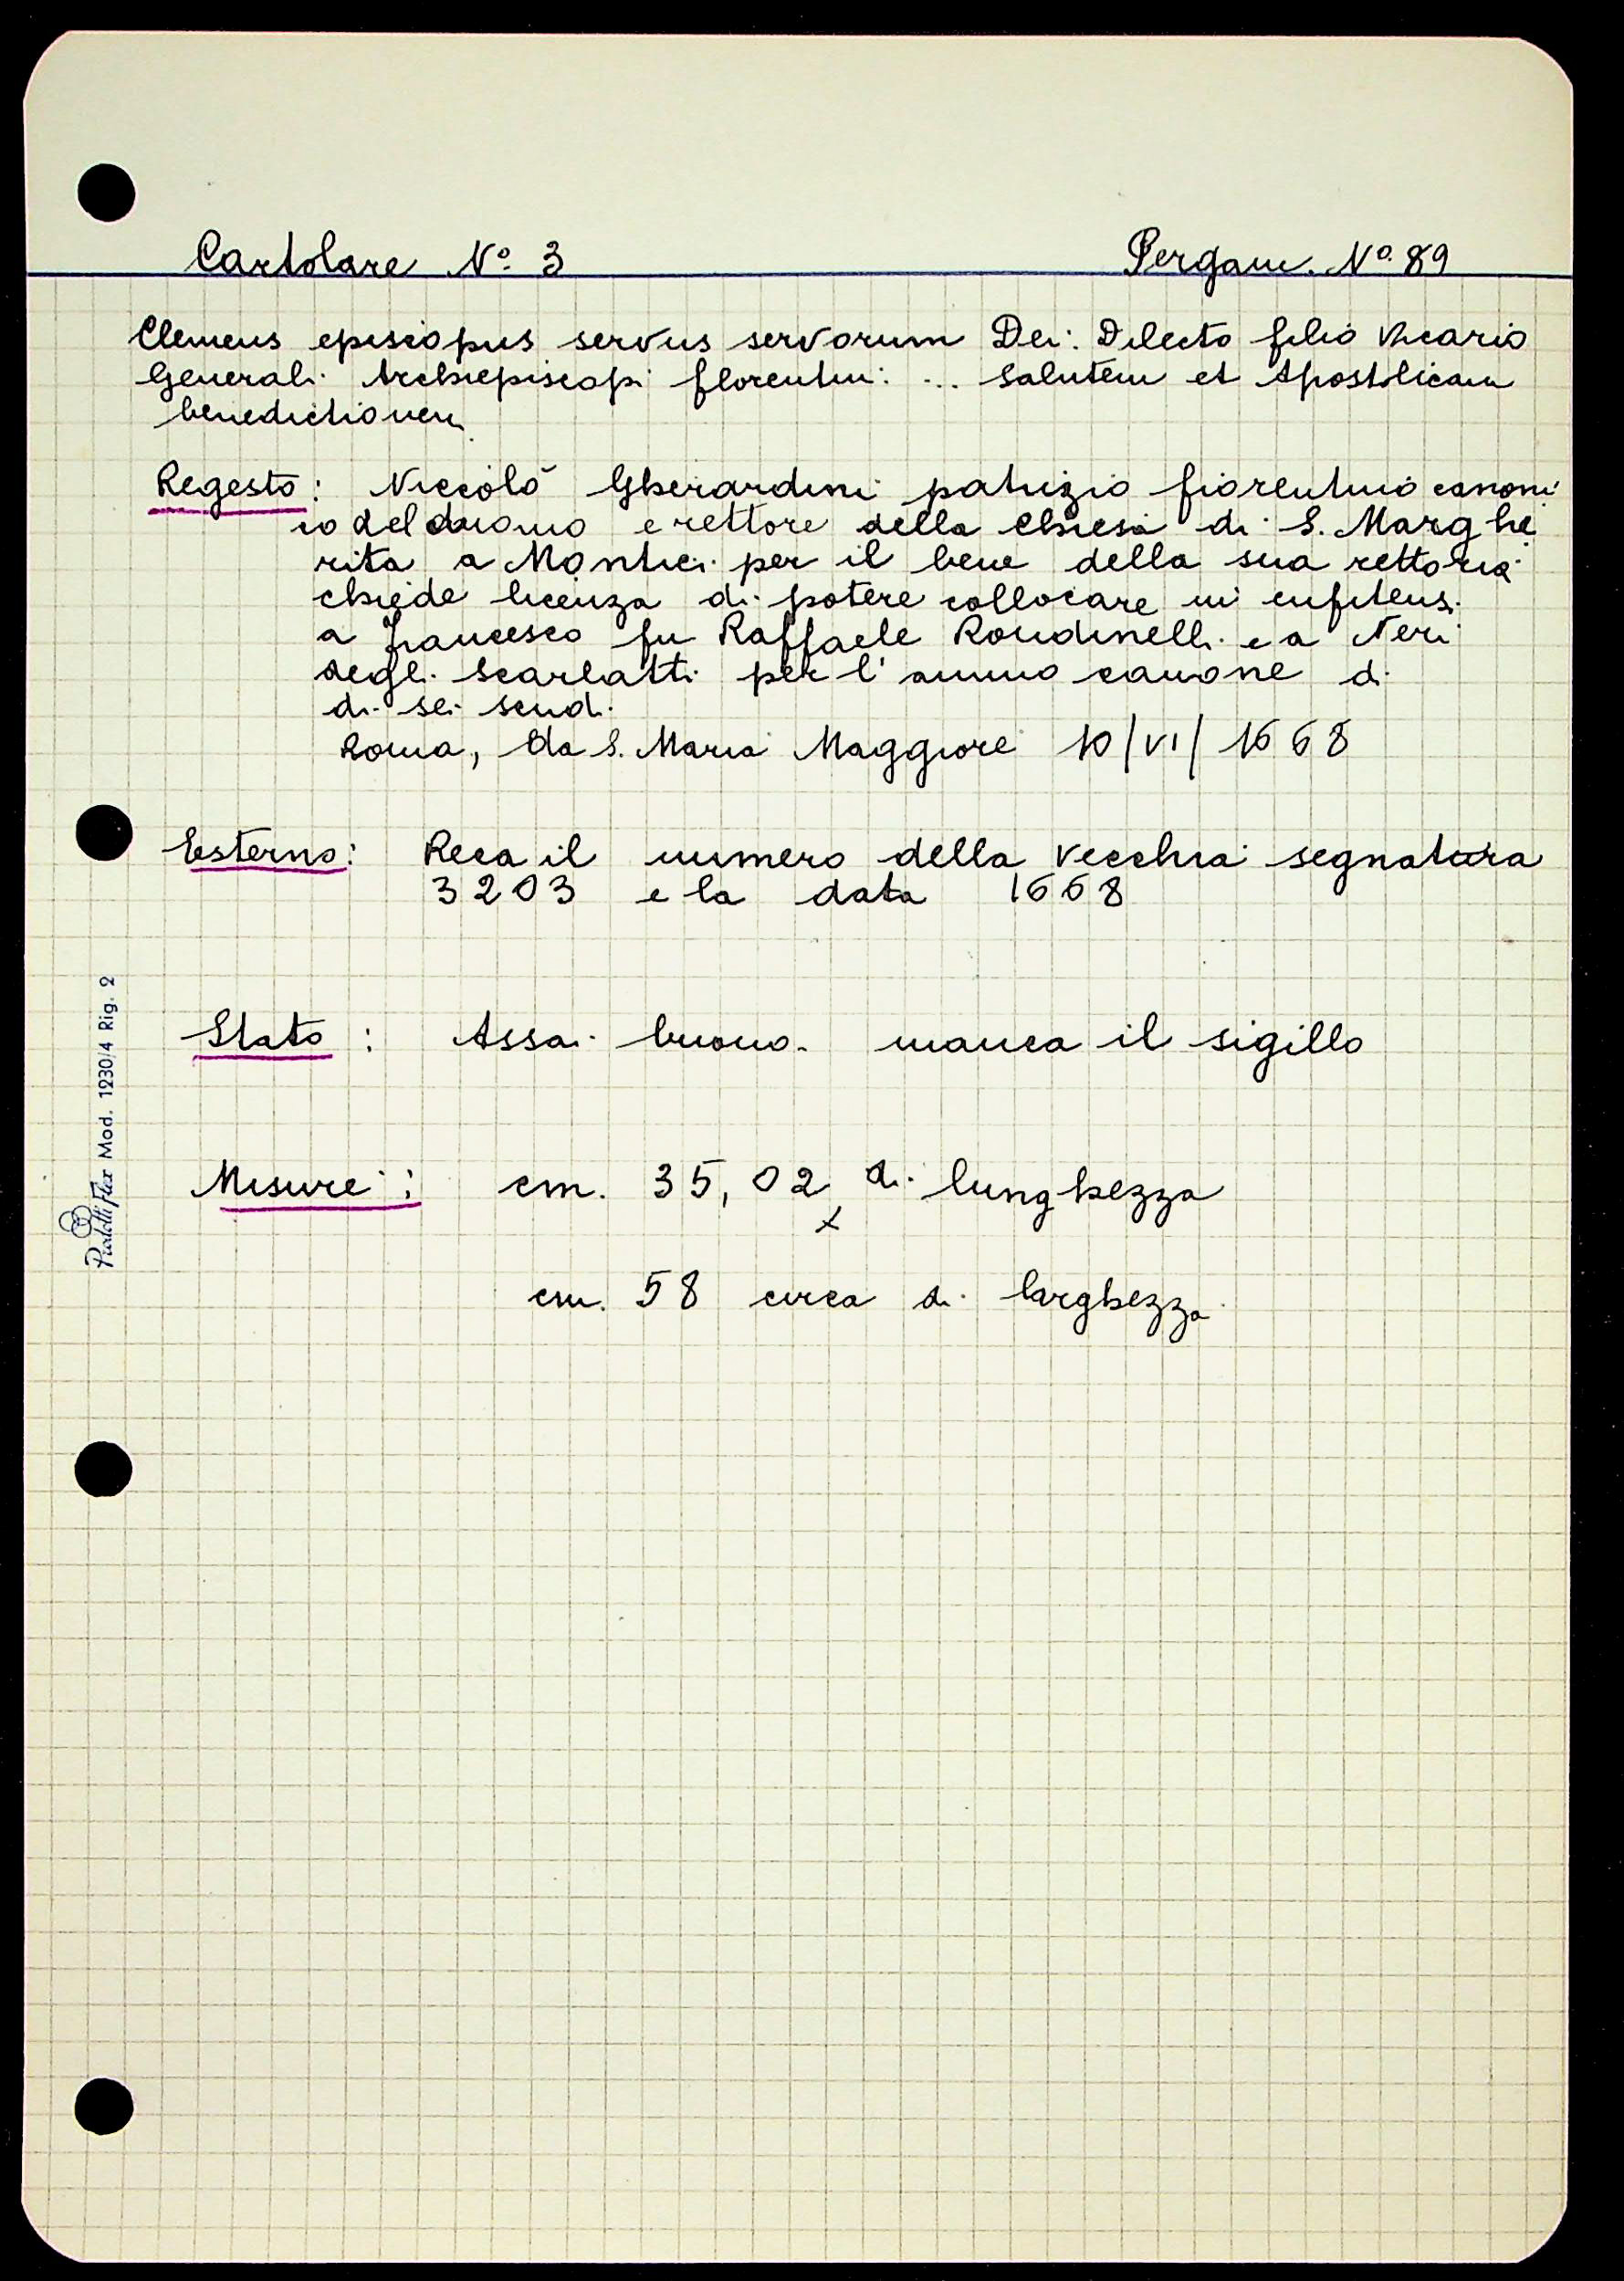 Cartolare N° 3 Pergam. N° 89
Clemens episcopus servus servorum Dei: Dilecto filio Vicario
Generali Archiepiscopi florentini ... salutem et Apostolicam
benedictionem
Regesto: Niccolò Gherardini patrizio fiorentino canoni
co del duomo e rettore della Chiesa di S. Marghe
rita a Montici per il bene della sua rettoria
chiede licenza di potere collocare in enfiteusi
a francesco fu Raffaele Rondinelli e a Neri
degli Scarlatti per l'annuo canone di
di sei scudi.
Roma, da S. Maria Maggiore 10/VI/1668
Esterno: Reca il numero della vecchia segnatura
3203 e la data 1668
Stato: Assai buono. manca il sigillo
Misure: cm. 35,02 di lunghezza
x
cm. 58 circa di larghezza
Mod. 1230/4 Rig. 2